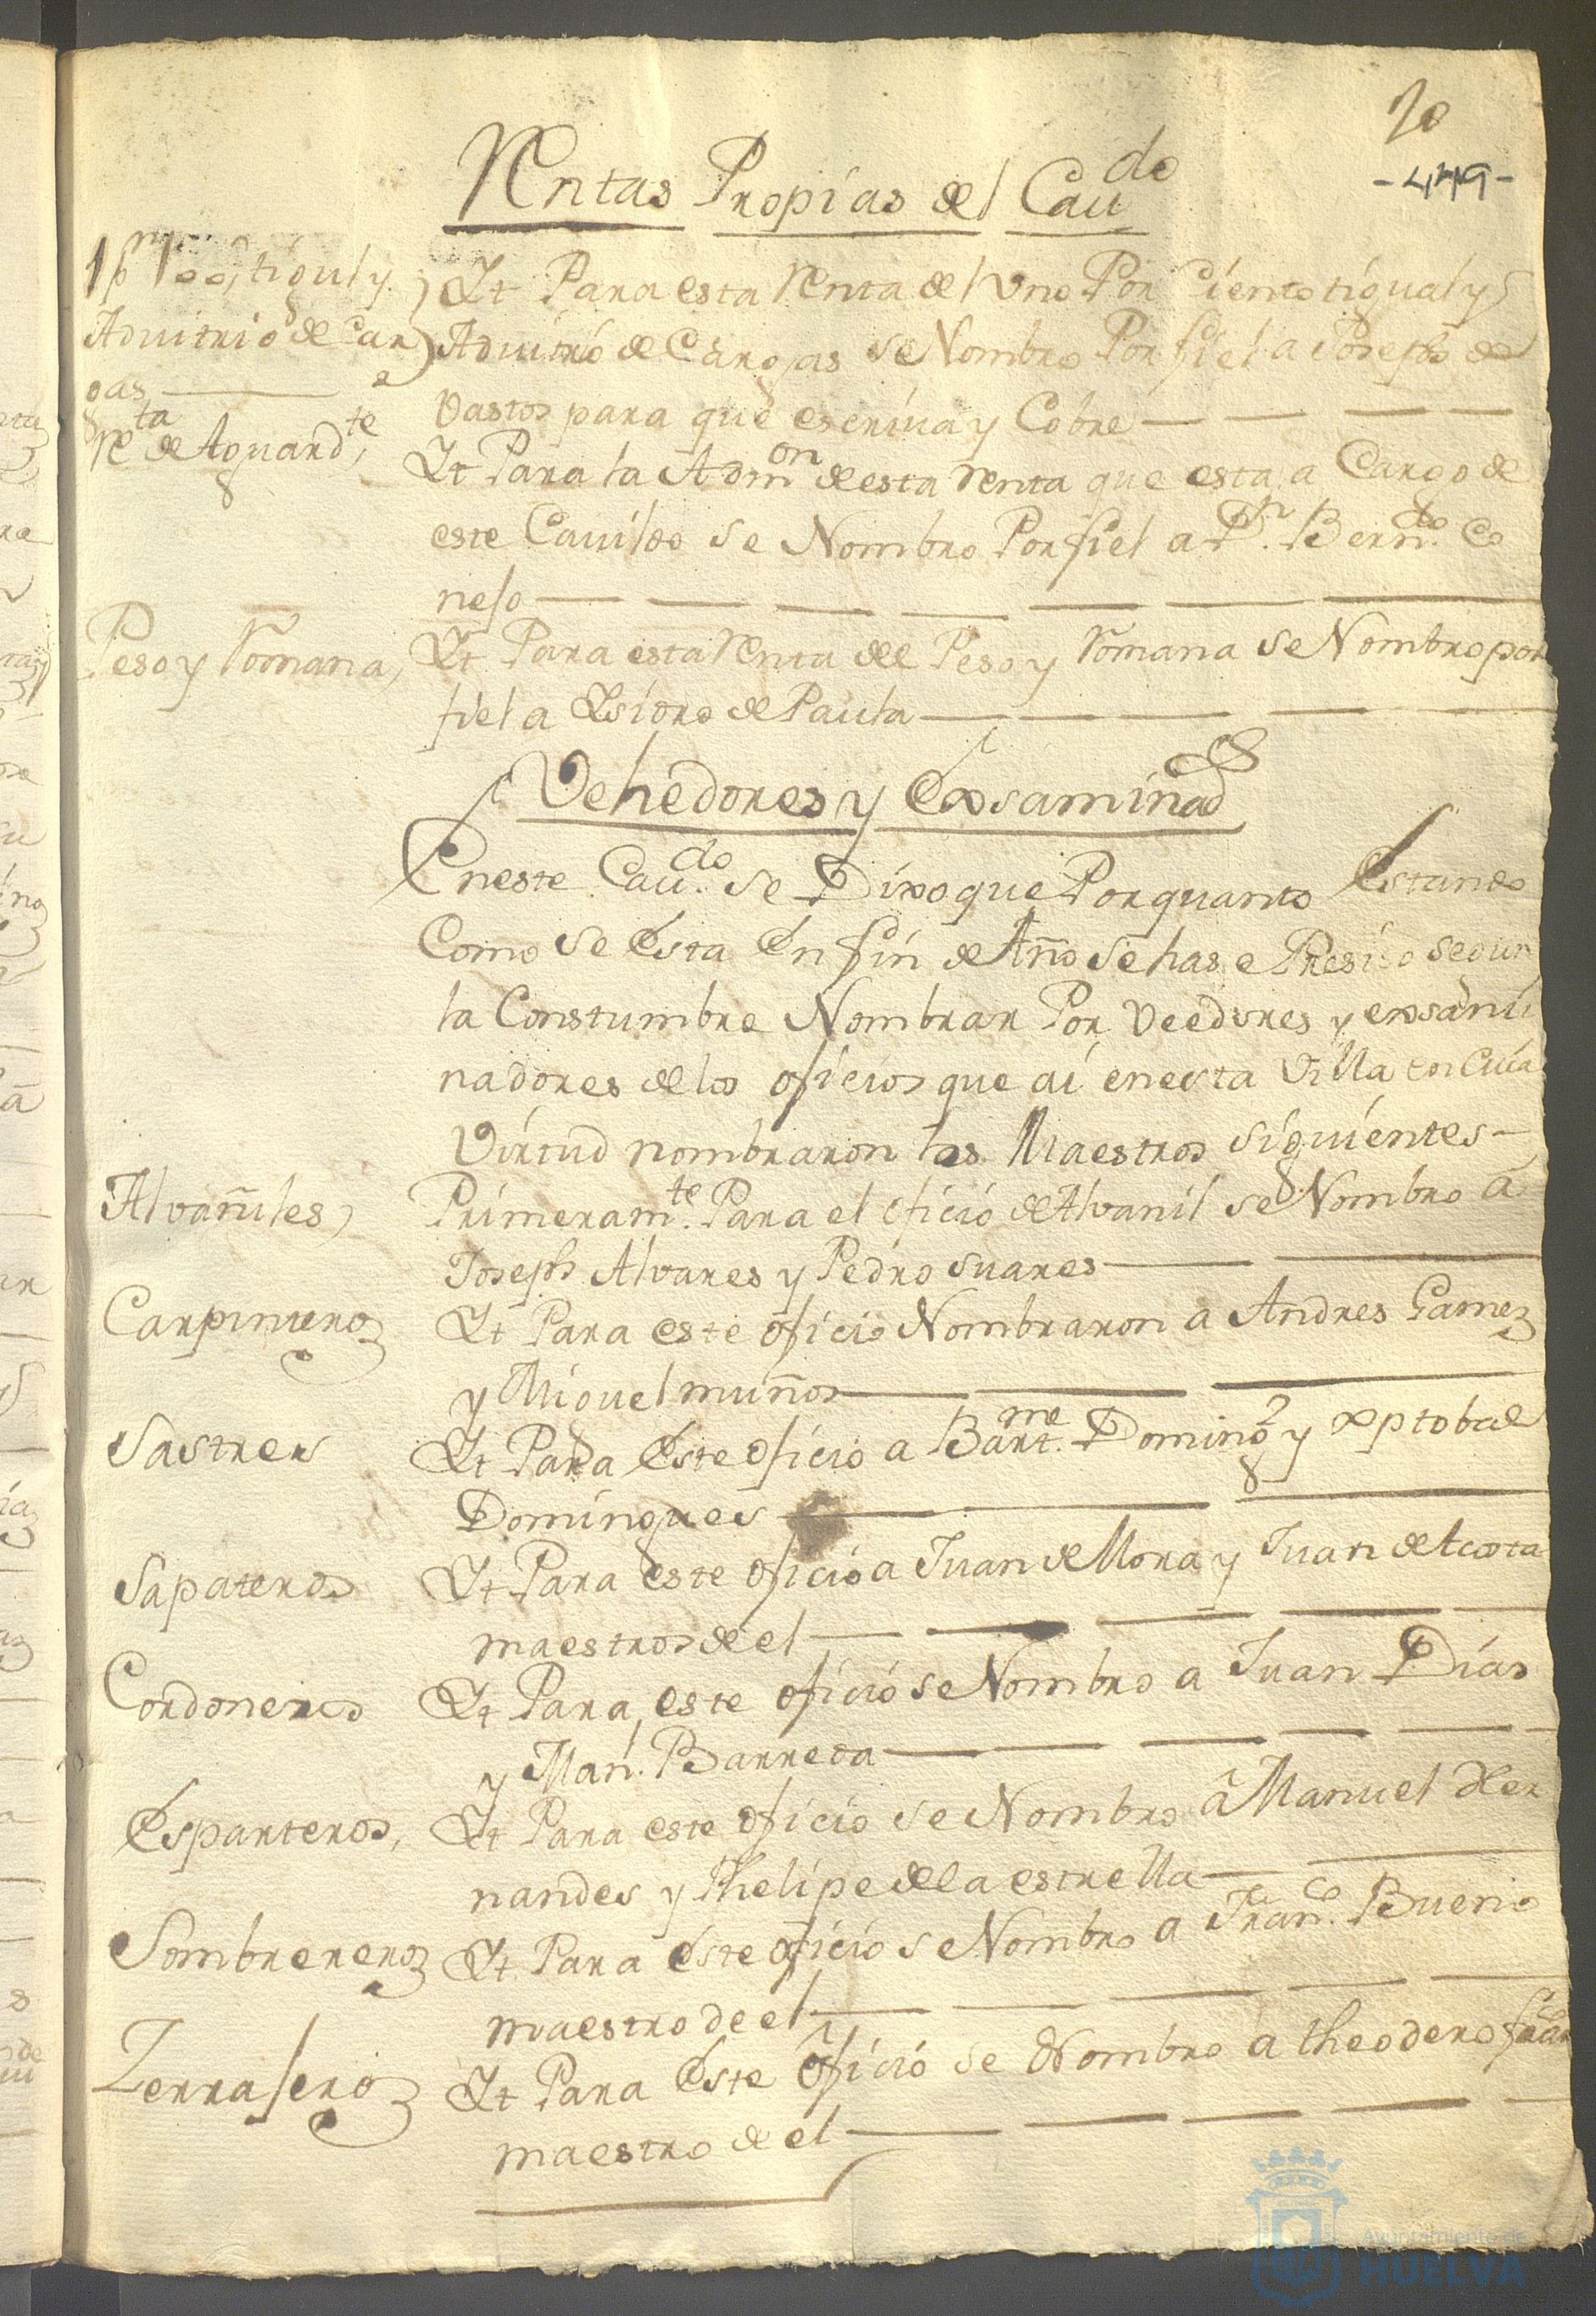 20
-449-
Rentas Propias del Cau.do
Aduitrio de Car
gas
Yt Para esta Renta del Uno Por Ciento tigual y
Aduitrio de Cargas se Nombro Por fiel a Joseph de
Vastos para que escriva y Cobre
Rta de Aguard.te
Yt Para la Adm.on de esta Renta que esta a Cargo de
este Cauildo se Nombro Por fiel a Dn. Bern.do Co
neso
Peso y Romana,
Yt Para esta Renta del Peso y Romana se Nombro por
fiel a Ysidro de Paula
Vehedores y Exsaminad.es
En este Cau.do se Dixo que Por quanto Estando
Como se Esta En fin de Año se hase Presiso segun
la Constumbre Nombrar Por Veedores y exsami
nadores de los oficios que ai en esta Villa en Cuia
Virtud nombraron los Maestros siguientes
Alvañiles,
Primeram.te Para el oficio de Alvanil se Nombro a
Joseph Alvares y Pedro Suares
Carpinteros
Yt Para este oficio Nombraron a Andres Gamez
y Miguel muños
Sastres
Yt Para Este oficio a Bart.me Doming.z y xptobal
Domingues
Sapateros
Yt Para este oficio a Juan de Mora y Juan de Acosta
maestros de el
Cordoneros
Yt Para este oficio se Nombro a Juan Dias
y Man.l Barreda
Esparteros,
Yt Para este oficio se Nombro a Manuel Her
nandes y Phelipe de la estrella
Sombrereros
Yt Para este oficio se Nombro a Fran.co Bueno
maestro de el
Zerrajeros
Yt Para Este oficio se Nombro a theodero
maestro de el
Ayuntamiento de
HUELVA